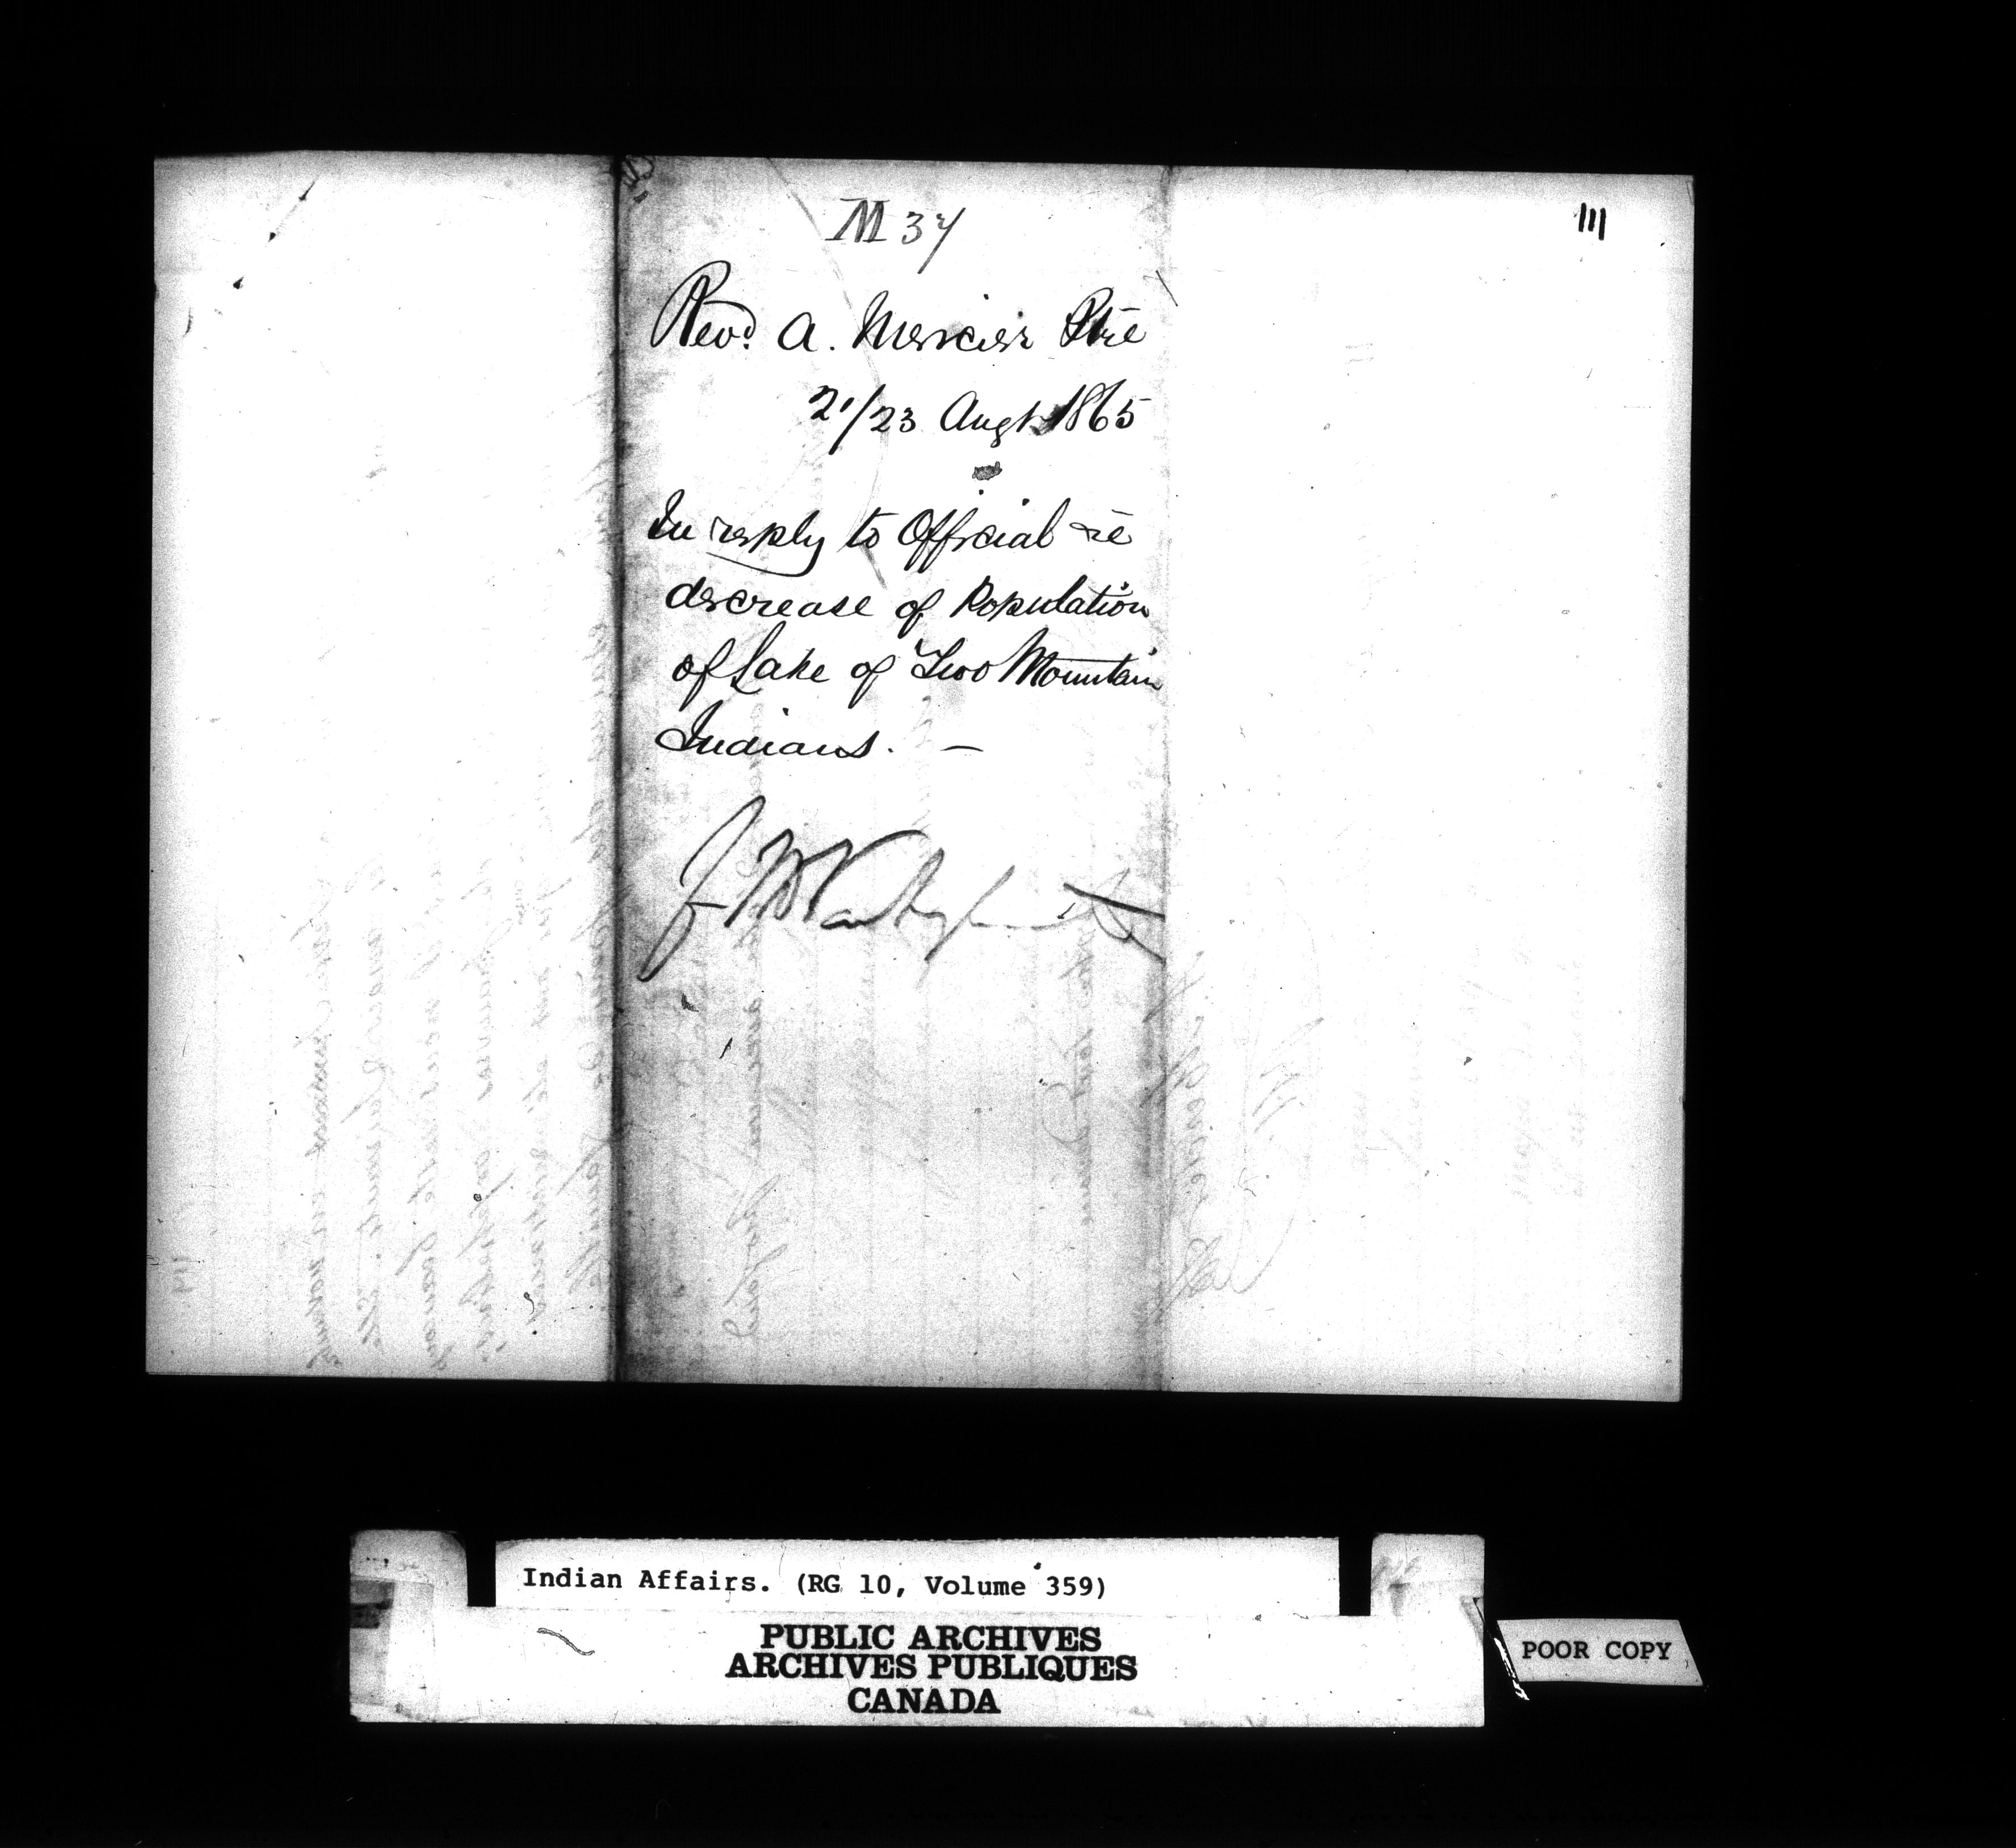 M 37
111
Revd. A. Mercier Ptre
21/23 Augt 1865
In reply to Official re
decrease of Population
of Lake of Two Mountain
Indians. —
Indian Affairs. (RG 10, Volume 359)
PUBLIC ARCHIVES
ARCHIVES PUBLIQUES
CANADA
POOR COPY